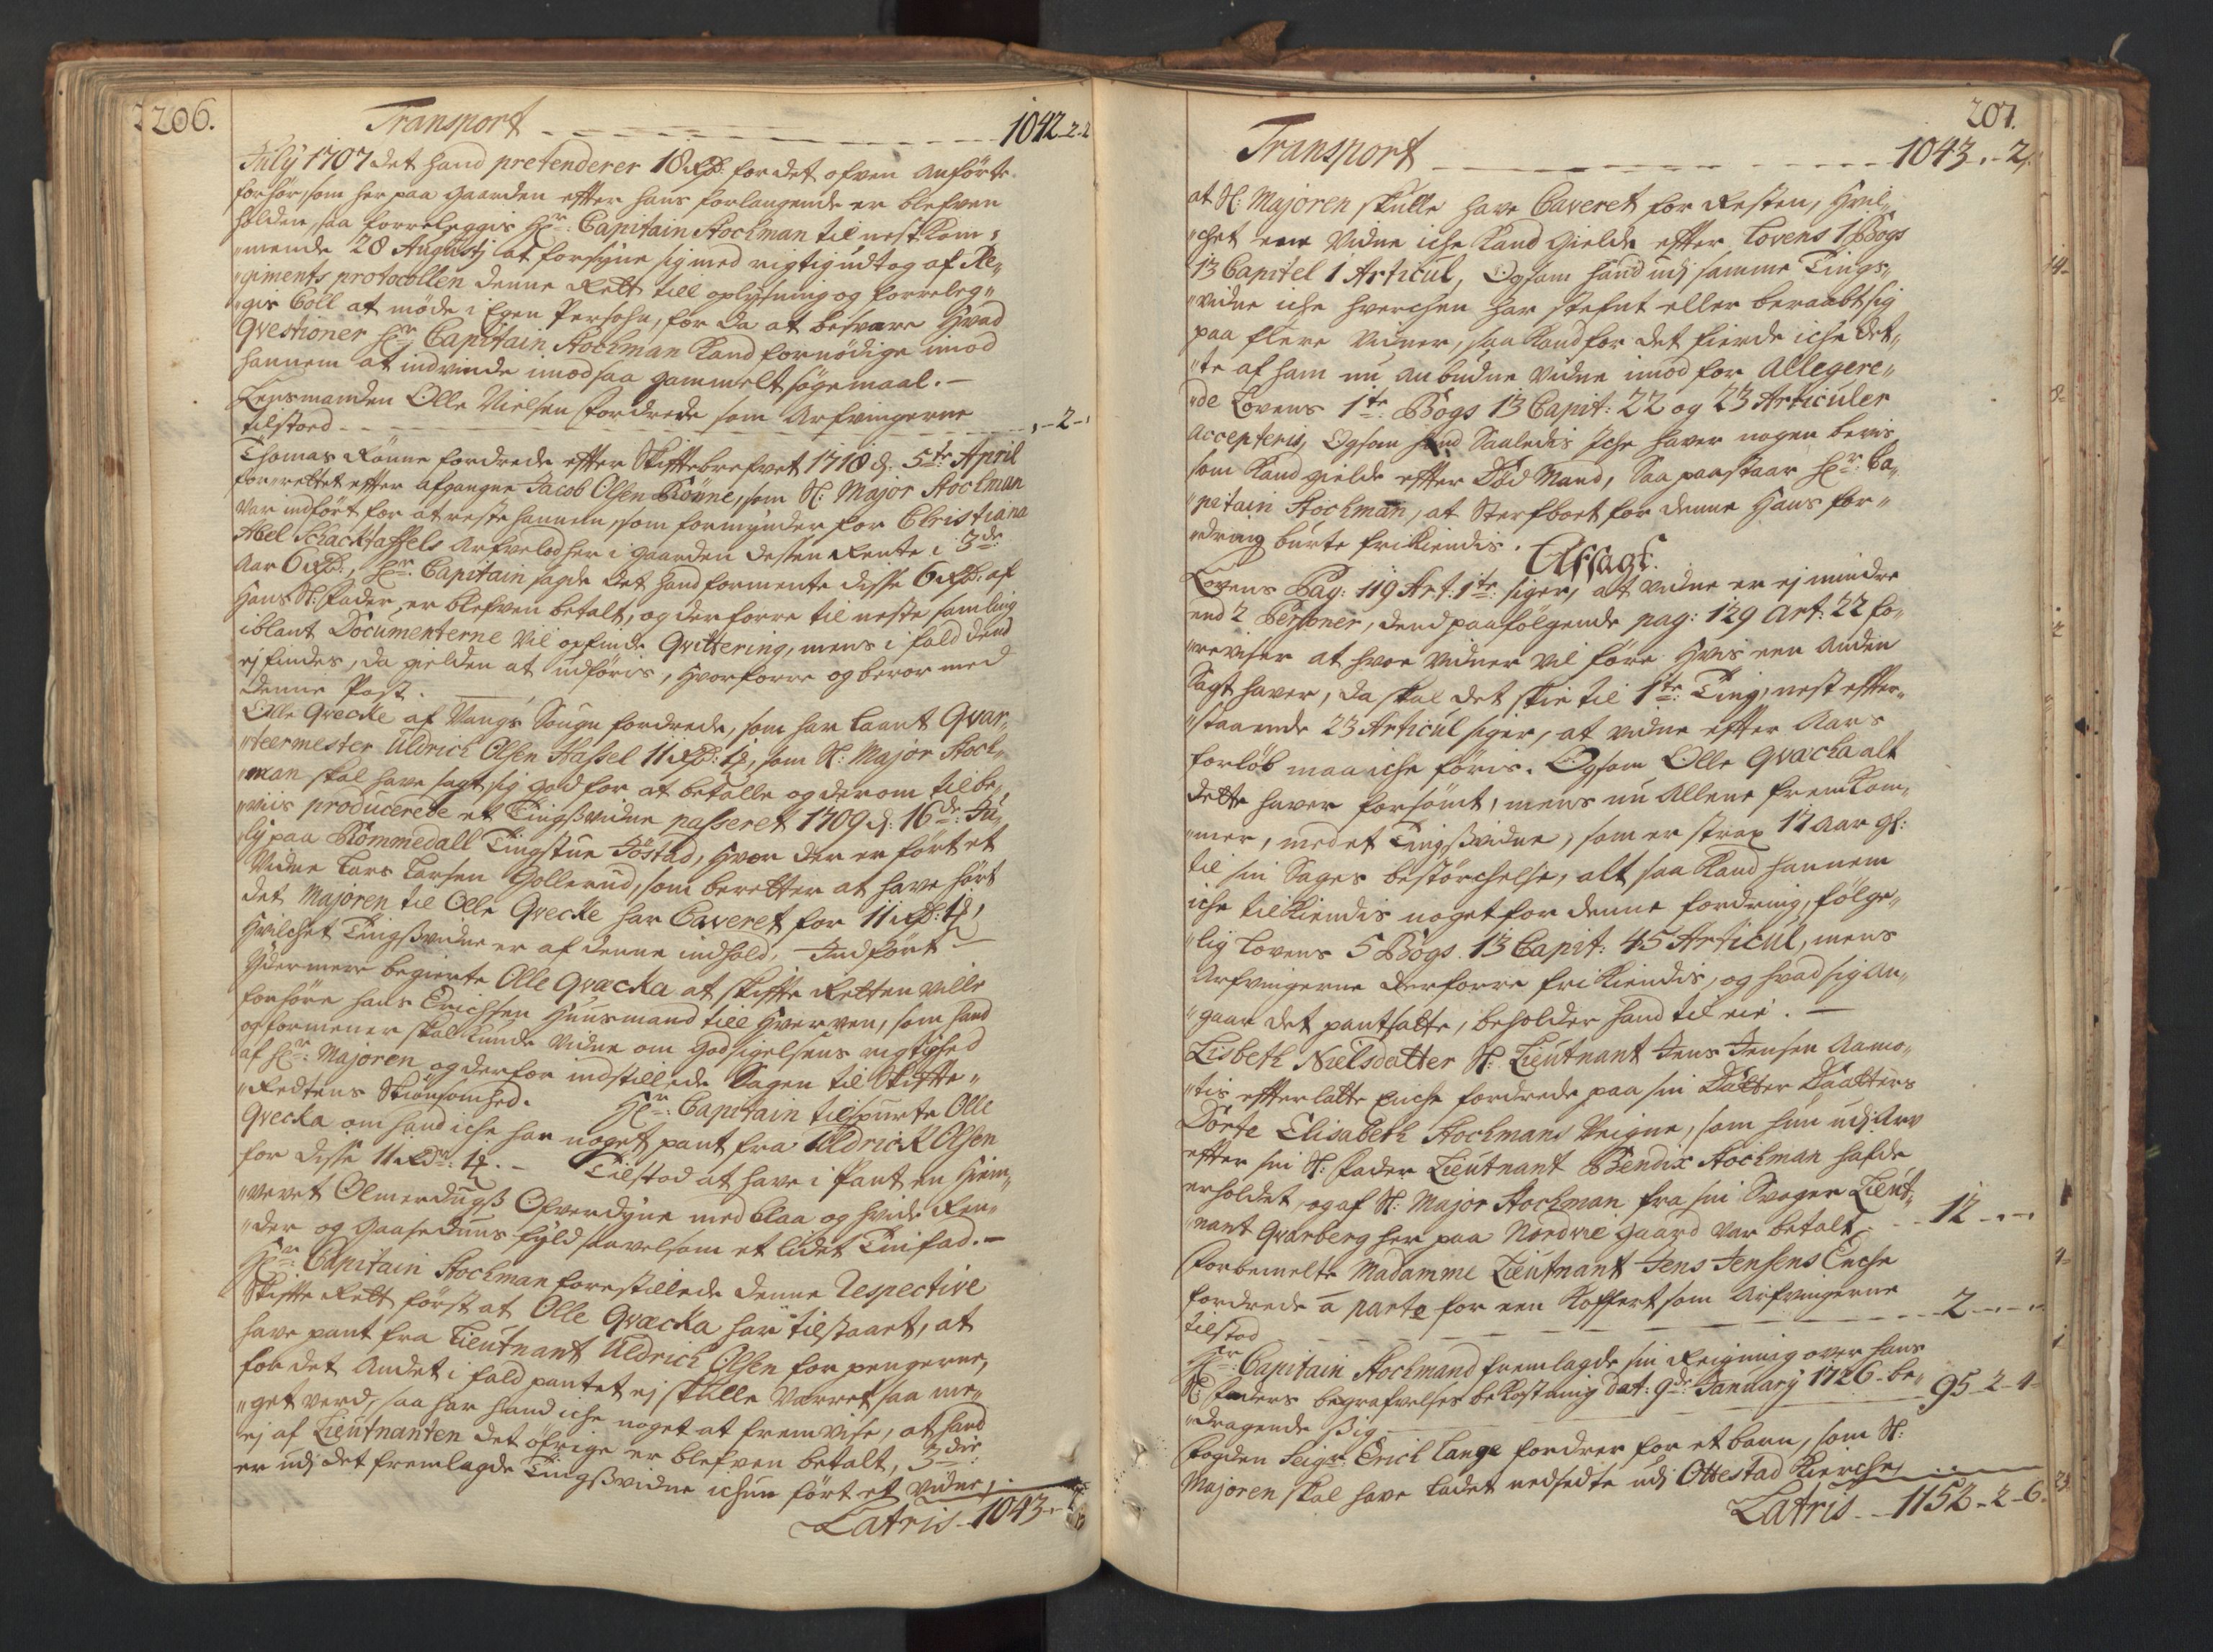 206.
Transport - - - 1042-2-2
July 1707 det hand pretenderer 18 Rd: for det ofven anførte
forhør, som her paa gaarden efter hans forlangende er blefven
holden, saa forreleggis Hr: Capitain Stockman til nest kom-
"mende 28 Augustj at forsyne sig med rigtig udtog af Re-
"giments protocollen denne Rett till oplysning og forreleg-
"gis Coll at møde i Egen Persohn, for da at besvare hvad
Qvestioner Hr: Capitain Stockman kand fornødige imod
hannem at indvinde imod saa gammelt søgemaal. -
Lensmanden Olle Nielsen fordrede som Arfvingerne
tilstoed - - - " - 2 - "
Thomas Rønne fordrede efter Skiftebrefvet 1718 d: 5te April
forrettet efter afgangne Jacob Olsen Rønne, som Sl: Major Stockman
var indført for at reste hannem, som formynder for Christiana
Abel Schacktaffels Arfvelod her i gaarden dessen Rente i 3de
Aar 6 Rd:, Hr: Capitain sagde det hand formente disse 6 Rd: af
hans Sl: Fader er blefven betalt, og derforre til neste samling
iblant Documenterne vil opfinde Qvittering, mens i fald dend
ej findes, da gielden at udføris, hvorforre og beror med
denne Post.
Olle Qvecke af Vangs Sougn fordrede, som har laant Qvar-
"teermester Uldrich Olsen Hassel 11 Rd: 1 ƒ, som Sl: Major Stock-
"man skal have sagt sig god for at betalle og derom til be-
"viis producerede et Tingsvidne passeret 1709 d: 16de Ju-
"ly paa Rommedall Tingstue Jøstad, hvor der er ført et
Vidne Lars Larsen Gollerud, som beretter at have hørt
det Majoren til Olle Qvecke har Caveret for 11 Rd: 1 ƒ,
hvilchet Tingsvidne er af denne indhold, - Indført -
Ydermere begierte Olle Qvacka at skifte Retten ville
forhøre Hans Erichsen Huusmand till Hverven, som hand
og formener skal kunde vidne om Godsigelsens rigtighed
af Hr: Majoren, og derfor indstillede Sagen til Skifte-
"Redtens Skiønsomhed. Hr: Capitain tilspurte Olle
Qvecka om hand iche har noget pant fra Uldrick Olsen
for disse 11 Rdr: 1 ƒ. - Tilstod at have i Pant en Hiem-
"vevet Olmerdugs Ofverdyne med blaa og hvide Ren-
"der og Gaase Duuns fyld saavelsom et lidet Tinfad. -
Hr: Capitain Stockman forestillede denne Respective
Skifte Rett først at Olle Qvacka har tilstaaet, at
have pant fra Lieutnant Uldrich Olsen for pengerne,
for det Andet i fald pantet ej skulle værret saa me-
"get verd, saa har hand iche noget at fremvise, at hand
ej af Lieutnanten det øfrige er blefven betalt, 3die
er udj det fremlagde Tingsvidne ichun ført et Vidne,
Latris - 1043 - "
207.
Transport - - - 1043 " - 2
at Sl: Majoren skulle have Caveret for Resten, hvil-
"chet eene Vidne iche kand gielde efter Lovens 1 Bogs
13 Capitel 1 Articul, Og som hand udj samme Tings-
"vidne iche hverchen har stefnt eller beraabt sig
paa flere Vidner, saa kand for det fierde iche det-
"te af ham nu anbudne Vidne imod for Allegere-
"de Lovens 1te Bogs 13 Capit: 22 og 23 Articuler
accepteris, Og som hand Saaledis Iche haver nogen bevis
som kand gielde efter Død Mand, Saa paastaar Hr: Ca-
"pitain Stockman, at Sterfboet for denne Hans for-
"dring burte frikiendis. Afsagt.
Lovens Pag: 119 Art: 1te siger, at vidne er ej mindre
end 2 Personer, dend paafølgende pag: 129 Art: 22 fo-
"reviser at hvor vidner vil føre hvis een anden
Sagt haver, da skal det skie til 1te Ting, nest efter-
"staaende 23 Articul siger, at vidne efter Aars
forløb maa iche føris. Og som Olle Qvacka alt
dette haver forsømt, mens nu Allene fremkom-
"mer, med et Tingsvidne, som er strax 17 Aar gl:
til sin Sages bestørchelse, alt saa kand hannem
iche tilkiendis noget for denne fordring, følge-
"lig Lovens 5 Bogs 13 Capit: 45 Articul, mens
Arfvingerne derforre frikiendis, og hvad sig an-
"gaar det pantsatte, beholder hand til eie. -
Lisbeth Nielsdatter Sl: Lieutnant Jens Jensen Aamo-
"tis efterlatte Enche fordrede paa sin Datter Daatters
Dorte Elisabeth Stockmans Veigne, som hun udj Arv
efter sin Sl: Fader Lieutnant Bendix Stockman hafde
erholdet, og af Sl: Major Stockman fra sin Svoger Lieut-
"nant Qvarberg her paa Nordvie gaard var betalt - - 12 - " - "
Forbemelte Madamme Lieutnant Jens Jensens Enche
fordrede a parte for een Koffert som Arfvingerne
tilstod - - - 2 - " - "
Hr: Capitain Stockmand fremlagde sin Reigning over hans
Sl: Faders begrafvelses bekostning dat: 9de January 1726 - be-
"dragende sig - - - 95-2-4
Fogden Seigr: Erich Lange fordrer for et barn, som Sl:
Majoren skal have ladet nedsedte udj Ottestad Kierche,
Latris - - 1152-2-6